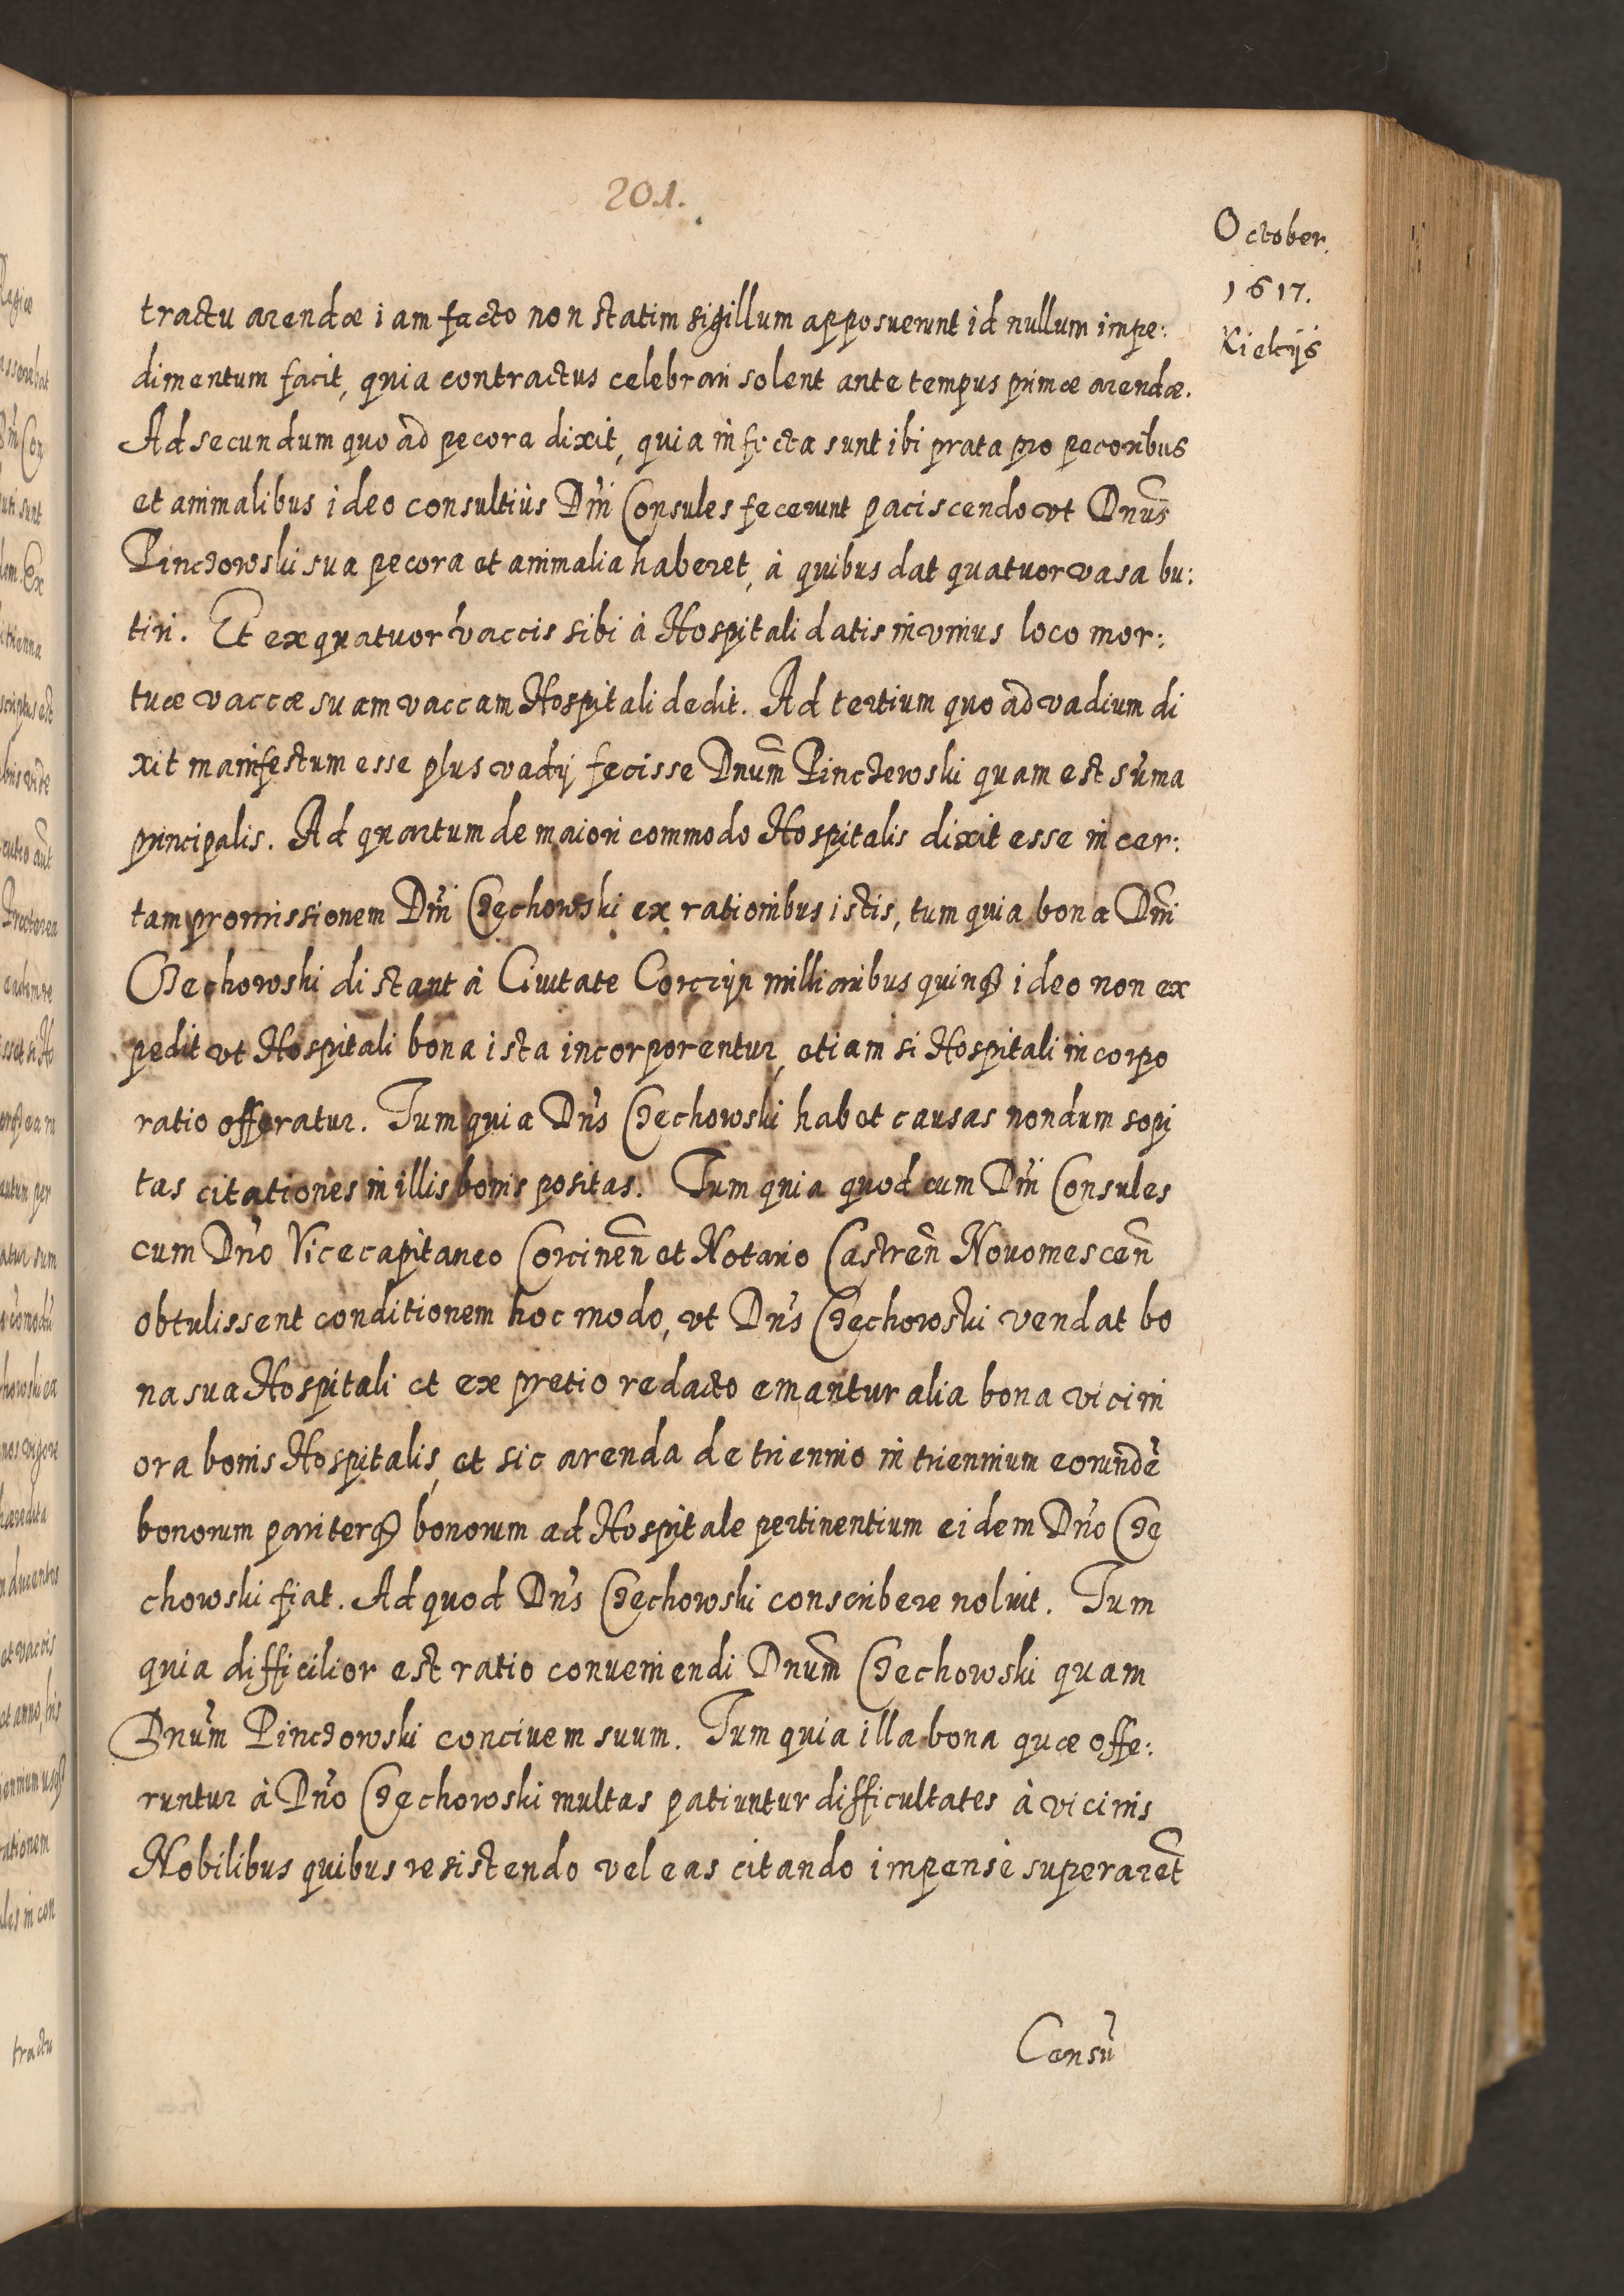 201.
October.
1617.
Kielcijs
tractu arendæ iam facto non statim sigillum apposuerunt id nullum impe:
dimentum facit, quia contractus celebrari solent ante tempus primæ arendæ.
Ad secundum quo ad pecora dixit, quia infecta sunt ibi prata pro pecoribus
et animalibus ideo consultiùs Dñi Consules fecerunt paciscendo vt Dnus̃
Pinczowski sua pecora et animalia haberet, à quibus dat quatuor vasa bu:
tiri. Et ex quatuor vaccis sibi à Hospitali datis in vnius loco mor:
tuæ vaccæ suam vaccam Hospitali dedit. Ad tertium quo ad vadium di
xit manifestum esse plus vadij fecisse Dnum̃ Pinczewski quam est sũma
principalis. Ad quartum de maiori commodo Hospitalis dixit esse incer:
tam promissionem Dñi Czechowski ex rationibus istis, tum quia bona Dñi
Czechowski distant à Ciuitate Corczyn milliaribus quinqȝ ideo non ex
pedit vt Hospitali bona ista incorporentur, etiam si Hospitali incorpo
ratio offeratur. Tum quia Dñs Czechowski habet causas nondum sopi
tas citationes in illis bonis positas. Tum quia quod cum Dñi Consules
cum Dño Vicecapitaneo Corcineñ et Notario Castreñ Nouomesceñ
obtulissent conditionem hoc modo, vt Dñs Czechowski vendat bo
na sua Hospitali et ex pretio redacto emantur alia bona vicini
ora bonis Hospitalis, et sic arenda de triennio in triennium eorundẽ
bonorum pariterqȝ bonorum ad Hospitale pertinentium eidem Dño Cze
chowski fiat. Ad quod Dñs Czechowski conscribere noluit. Tum
quia difficilior est ratio conueniendi Dnum̃ Czechowski quam
Dnum̃ Pinczowski conciuem suum. Tum quia illa bona quæ offe:
runtur à Dño Czechowski multas patiuntur difficultates à vicinis
Nobilibus quibus resistendo vel eas citando impensè superareñt
Consũ